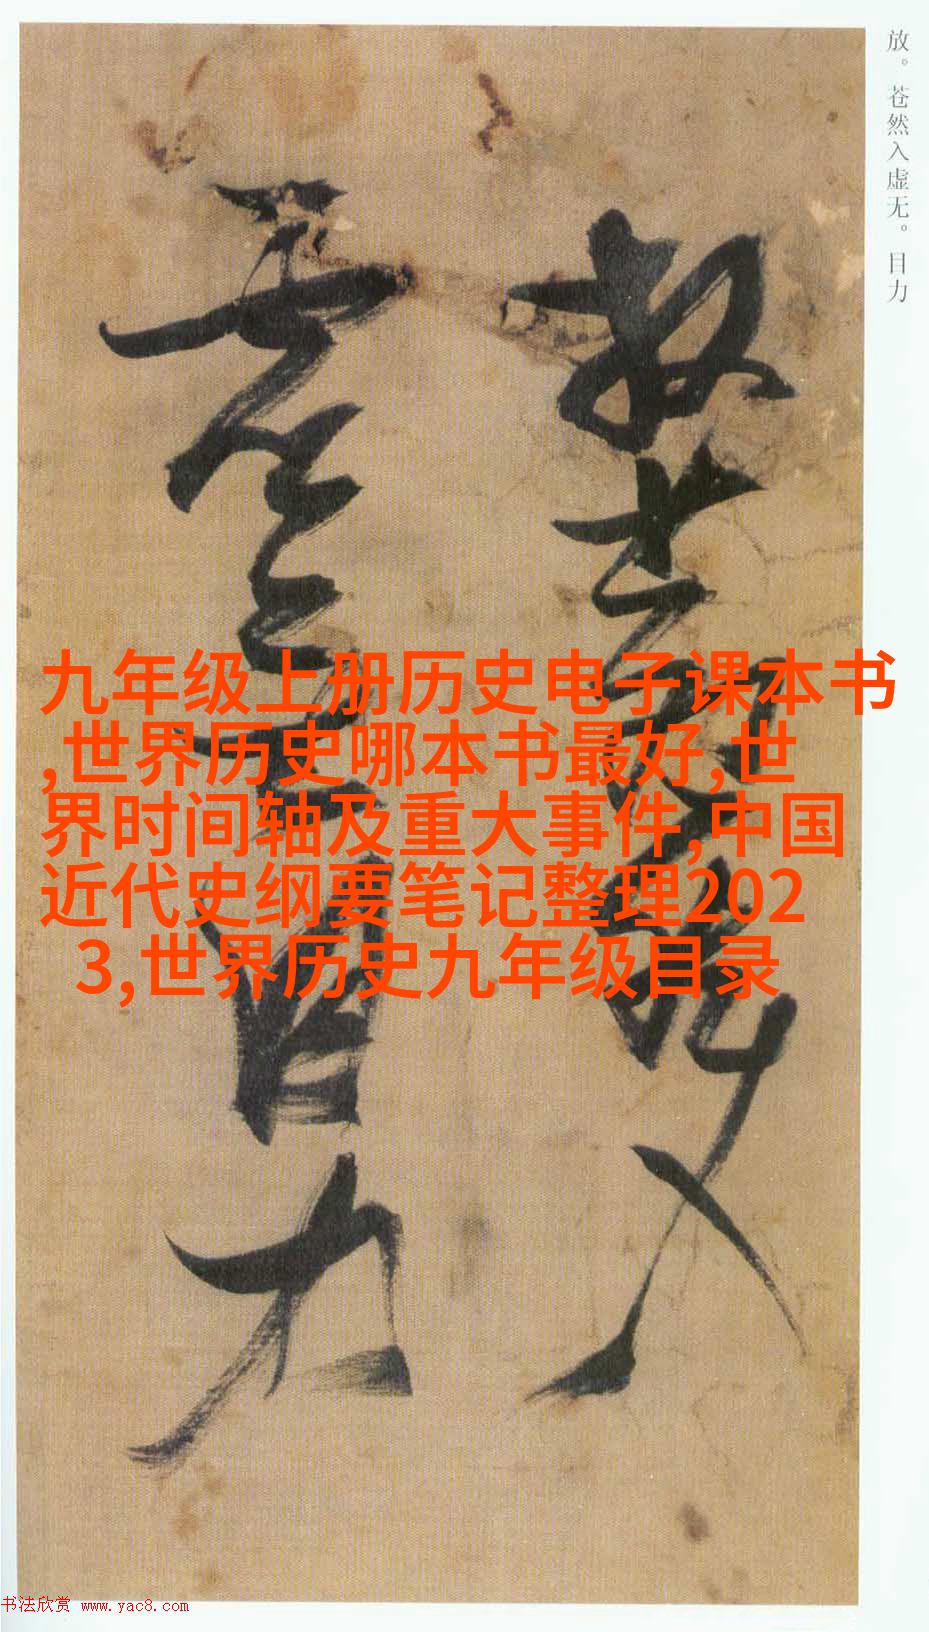 放。苍然入虚无。目力
放苍然入
虚无目力
九年级上册历史电子课本书
,世界历史哪本书最好,世
界时间轴及重大事件,中国
近代史纲要笔记整理202
3,世界历史九年级目录
书法欣赏 www.yac8.com